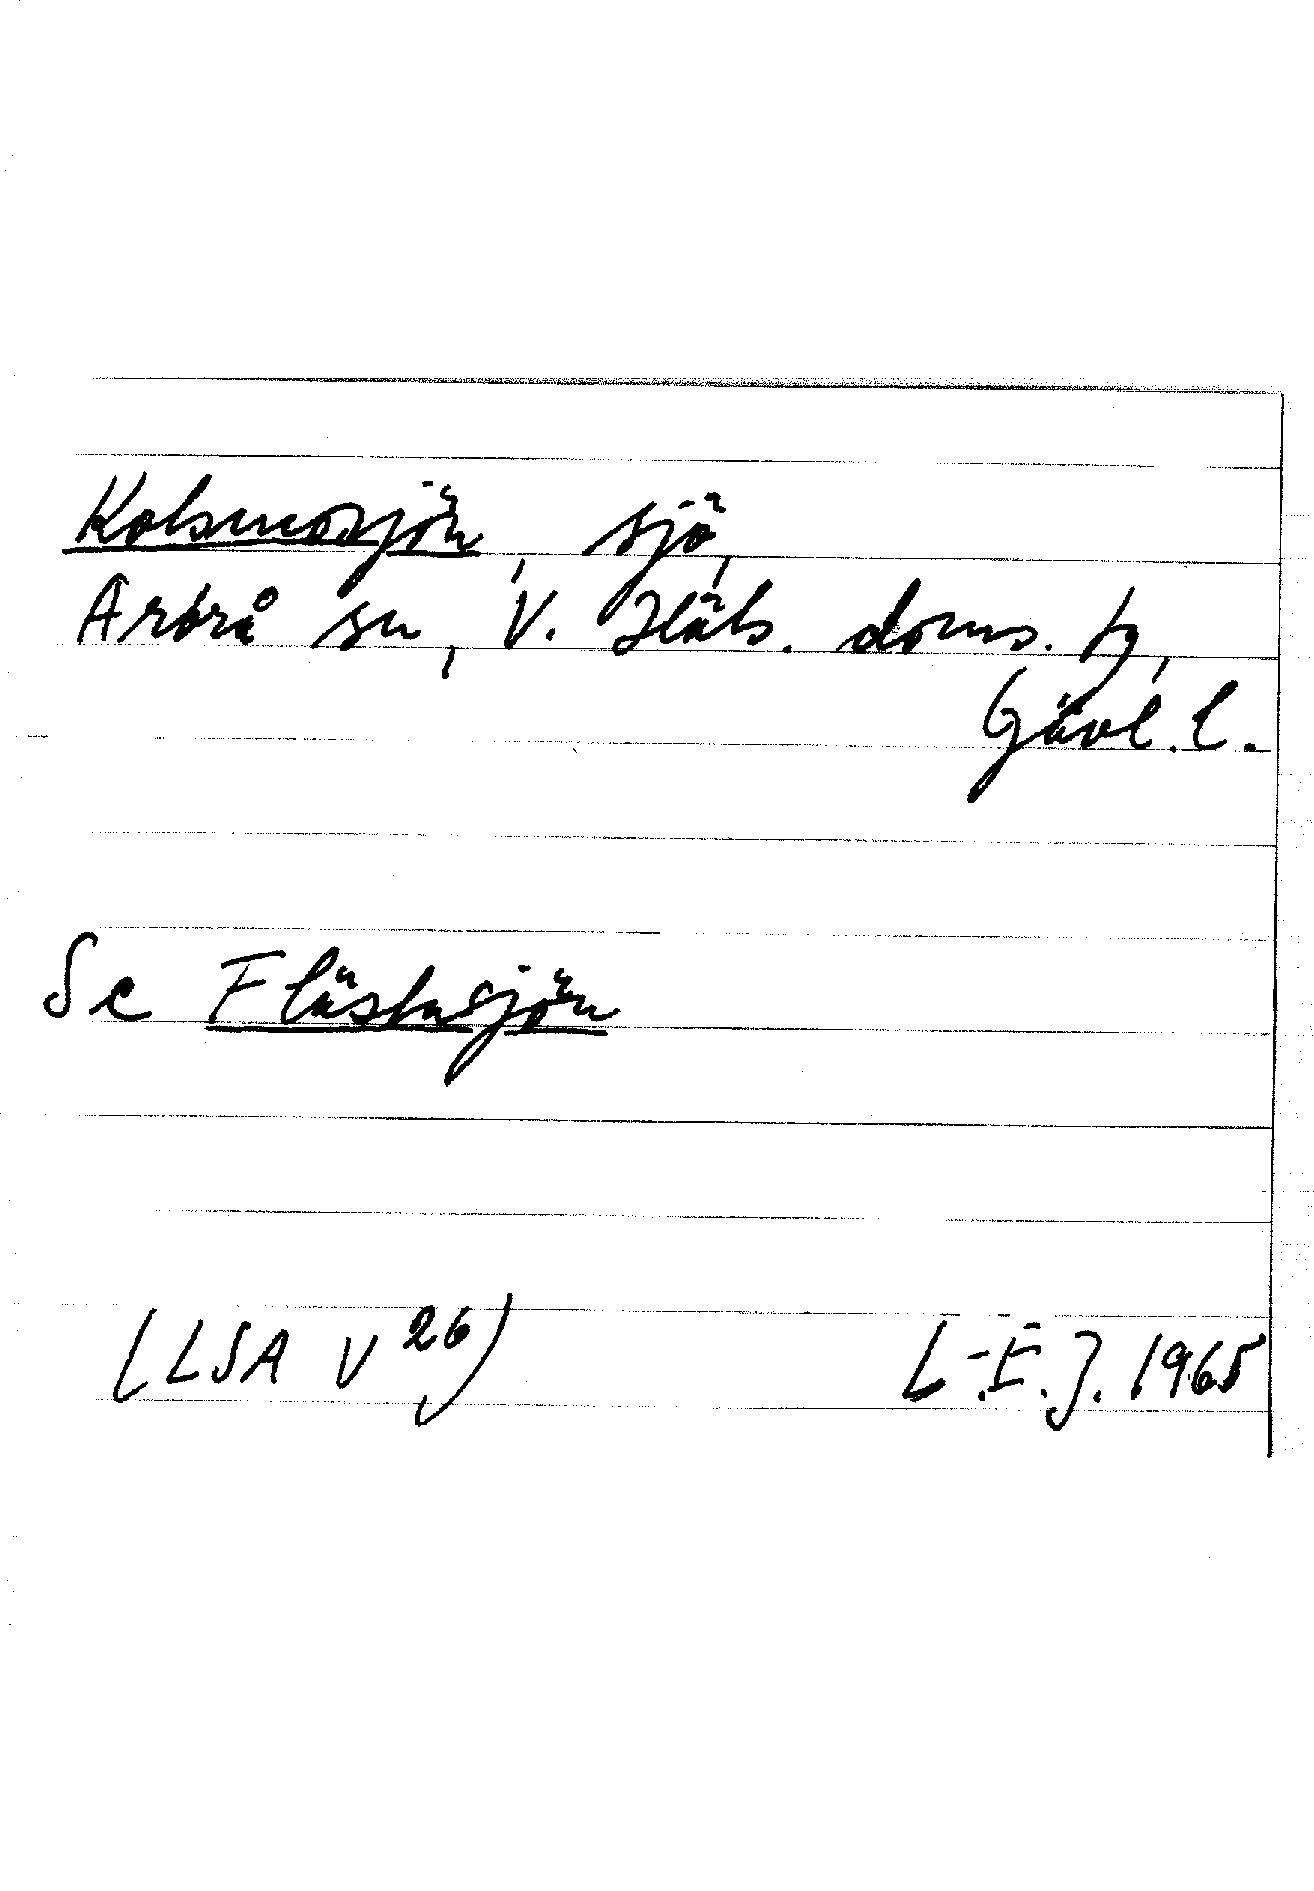 Kolsmosjön, sjö,
Arbrå sn, V. Häls. doms. tg,
Gävl. l.
Se Flästasjön
(LSA V 26)
L-E. J. 1965